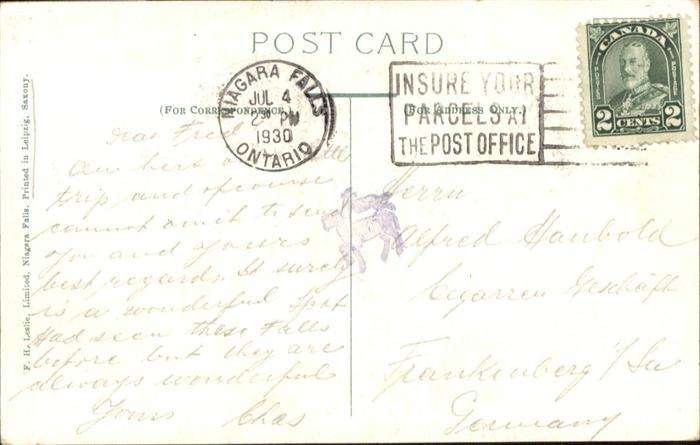 POST CARD
CANADA
POSTES
POSTAGE
2 CENTS 2
NIAGARA FALLS
JUL 4
PM
1930
ONTARIO
INSURE YOUR
PARCELS AT
THE POST OFFICE
(FOR CORRESPONDENCE.)
(FOR ADDRESS ONLY.)
Dear Fred
Am here on a little
trip and of course
cannot omit to send
you and yours
best regards. It surely
is a wonderful spot
Had seen these Falls
before but they are
always wonderful
Yours Chas
Herrn
Alfred Haubold
Cigarren Geschäft
Frankenberg i/Sa
Germany
F. H. Leslie, Limited, Niagara Falls. Printed in Leipzig, Saxony.